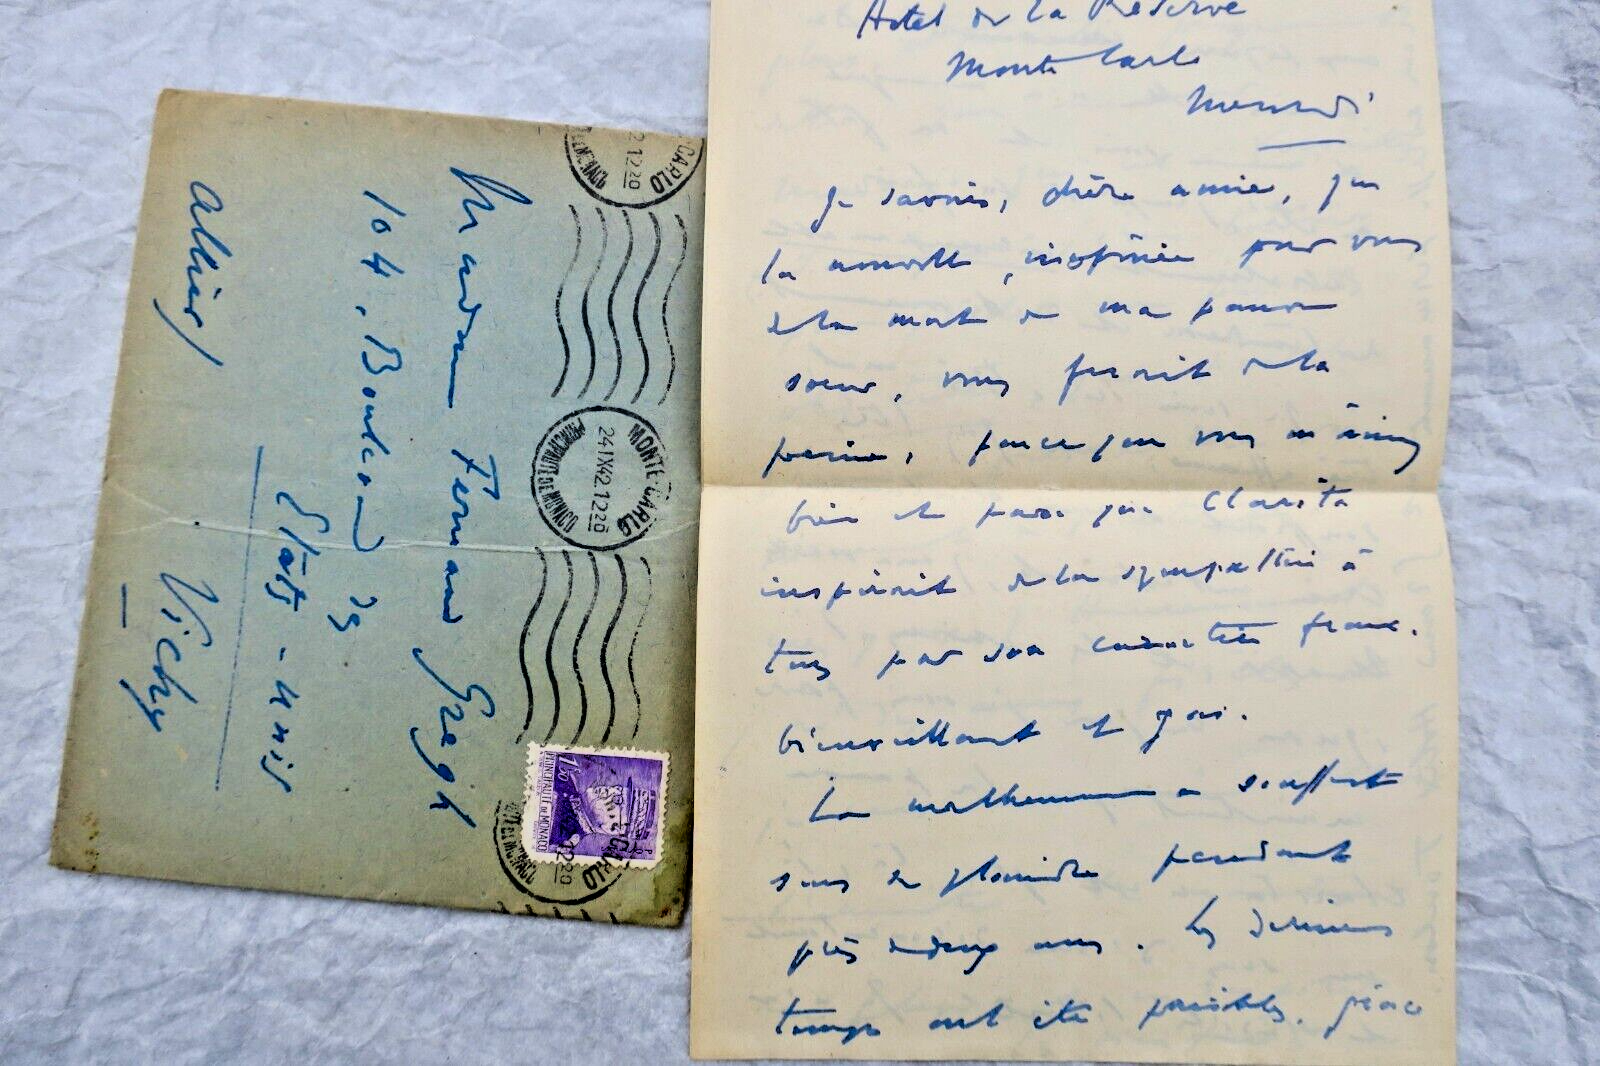 Madame Fernand Gregh
104, Boulevard des
Etats-Unis
Vichy
Allier
MONTE-CARLO
PRINCIPAUTÉ DE MONACO
24 IX 42 12 20
1F50
PRINCIPAUTÉ DE MONACO
Hotel de la Réserve
Monte Carlo
Mercredi
Je savais, chère amie, que
la nouvelle, par vous
de la mort de ma pauvre
soeur, vous ferait de la
peine, parce que vous m'aimez
bien et parce que Clarita
inspirait de la sympathie à
tous par son caractère franc,
bienveillant et gai.
La malheureuse a souffert
sans se plaindre pendant
près de deux ans. Les derniers
temps ont été paisibles, grâce